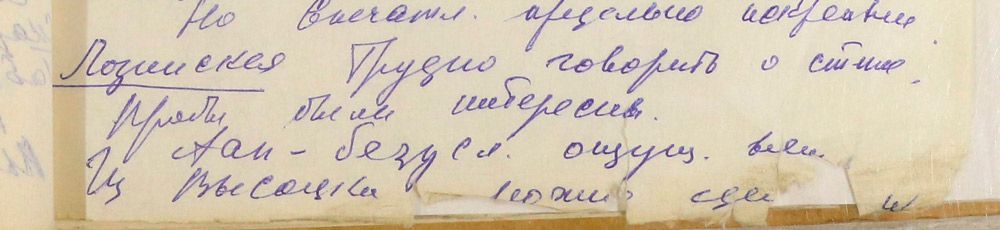 Но впечатл. предельно искренни
Лозинская Трудно говорить о стиле.
Пробы были интересны.
Ап - безусл. ощущ.
Из Высоцка можно сде